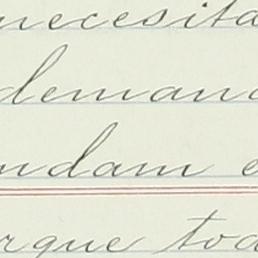 necesita
demand
ndam e
rque tod